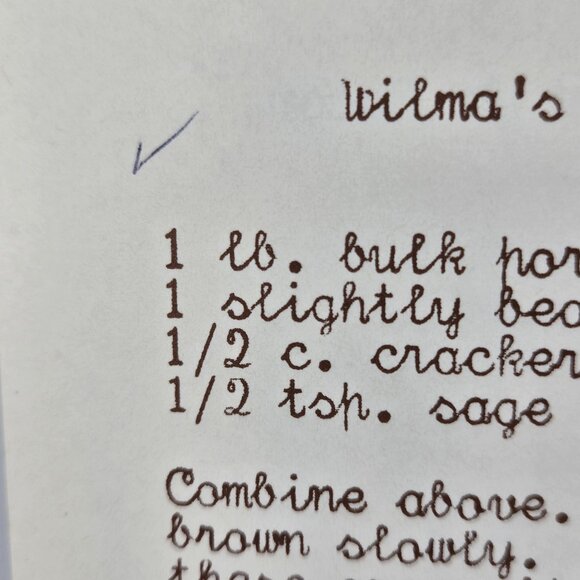 Wilma's
1 lb. bulk por
1 slightly bea
1/2 c. cracker
1/2 tsp. sage
Combine above.
brown slowly.